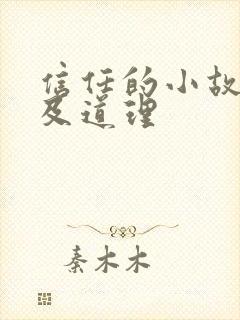 信任的小故
及道理
秦木木